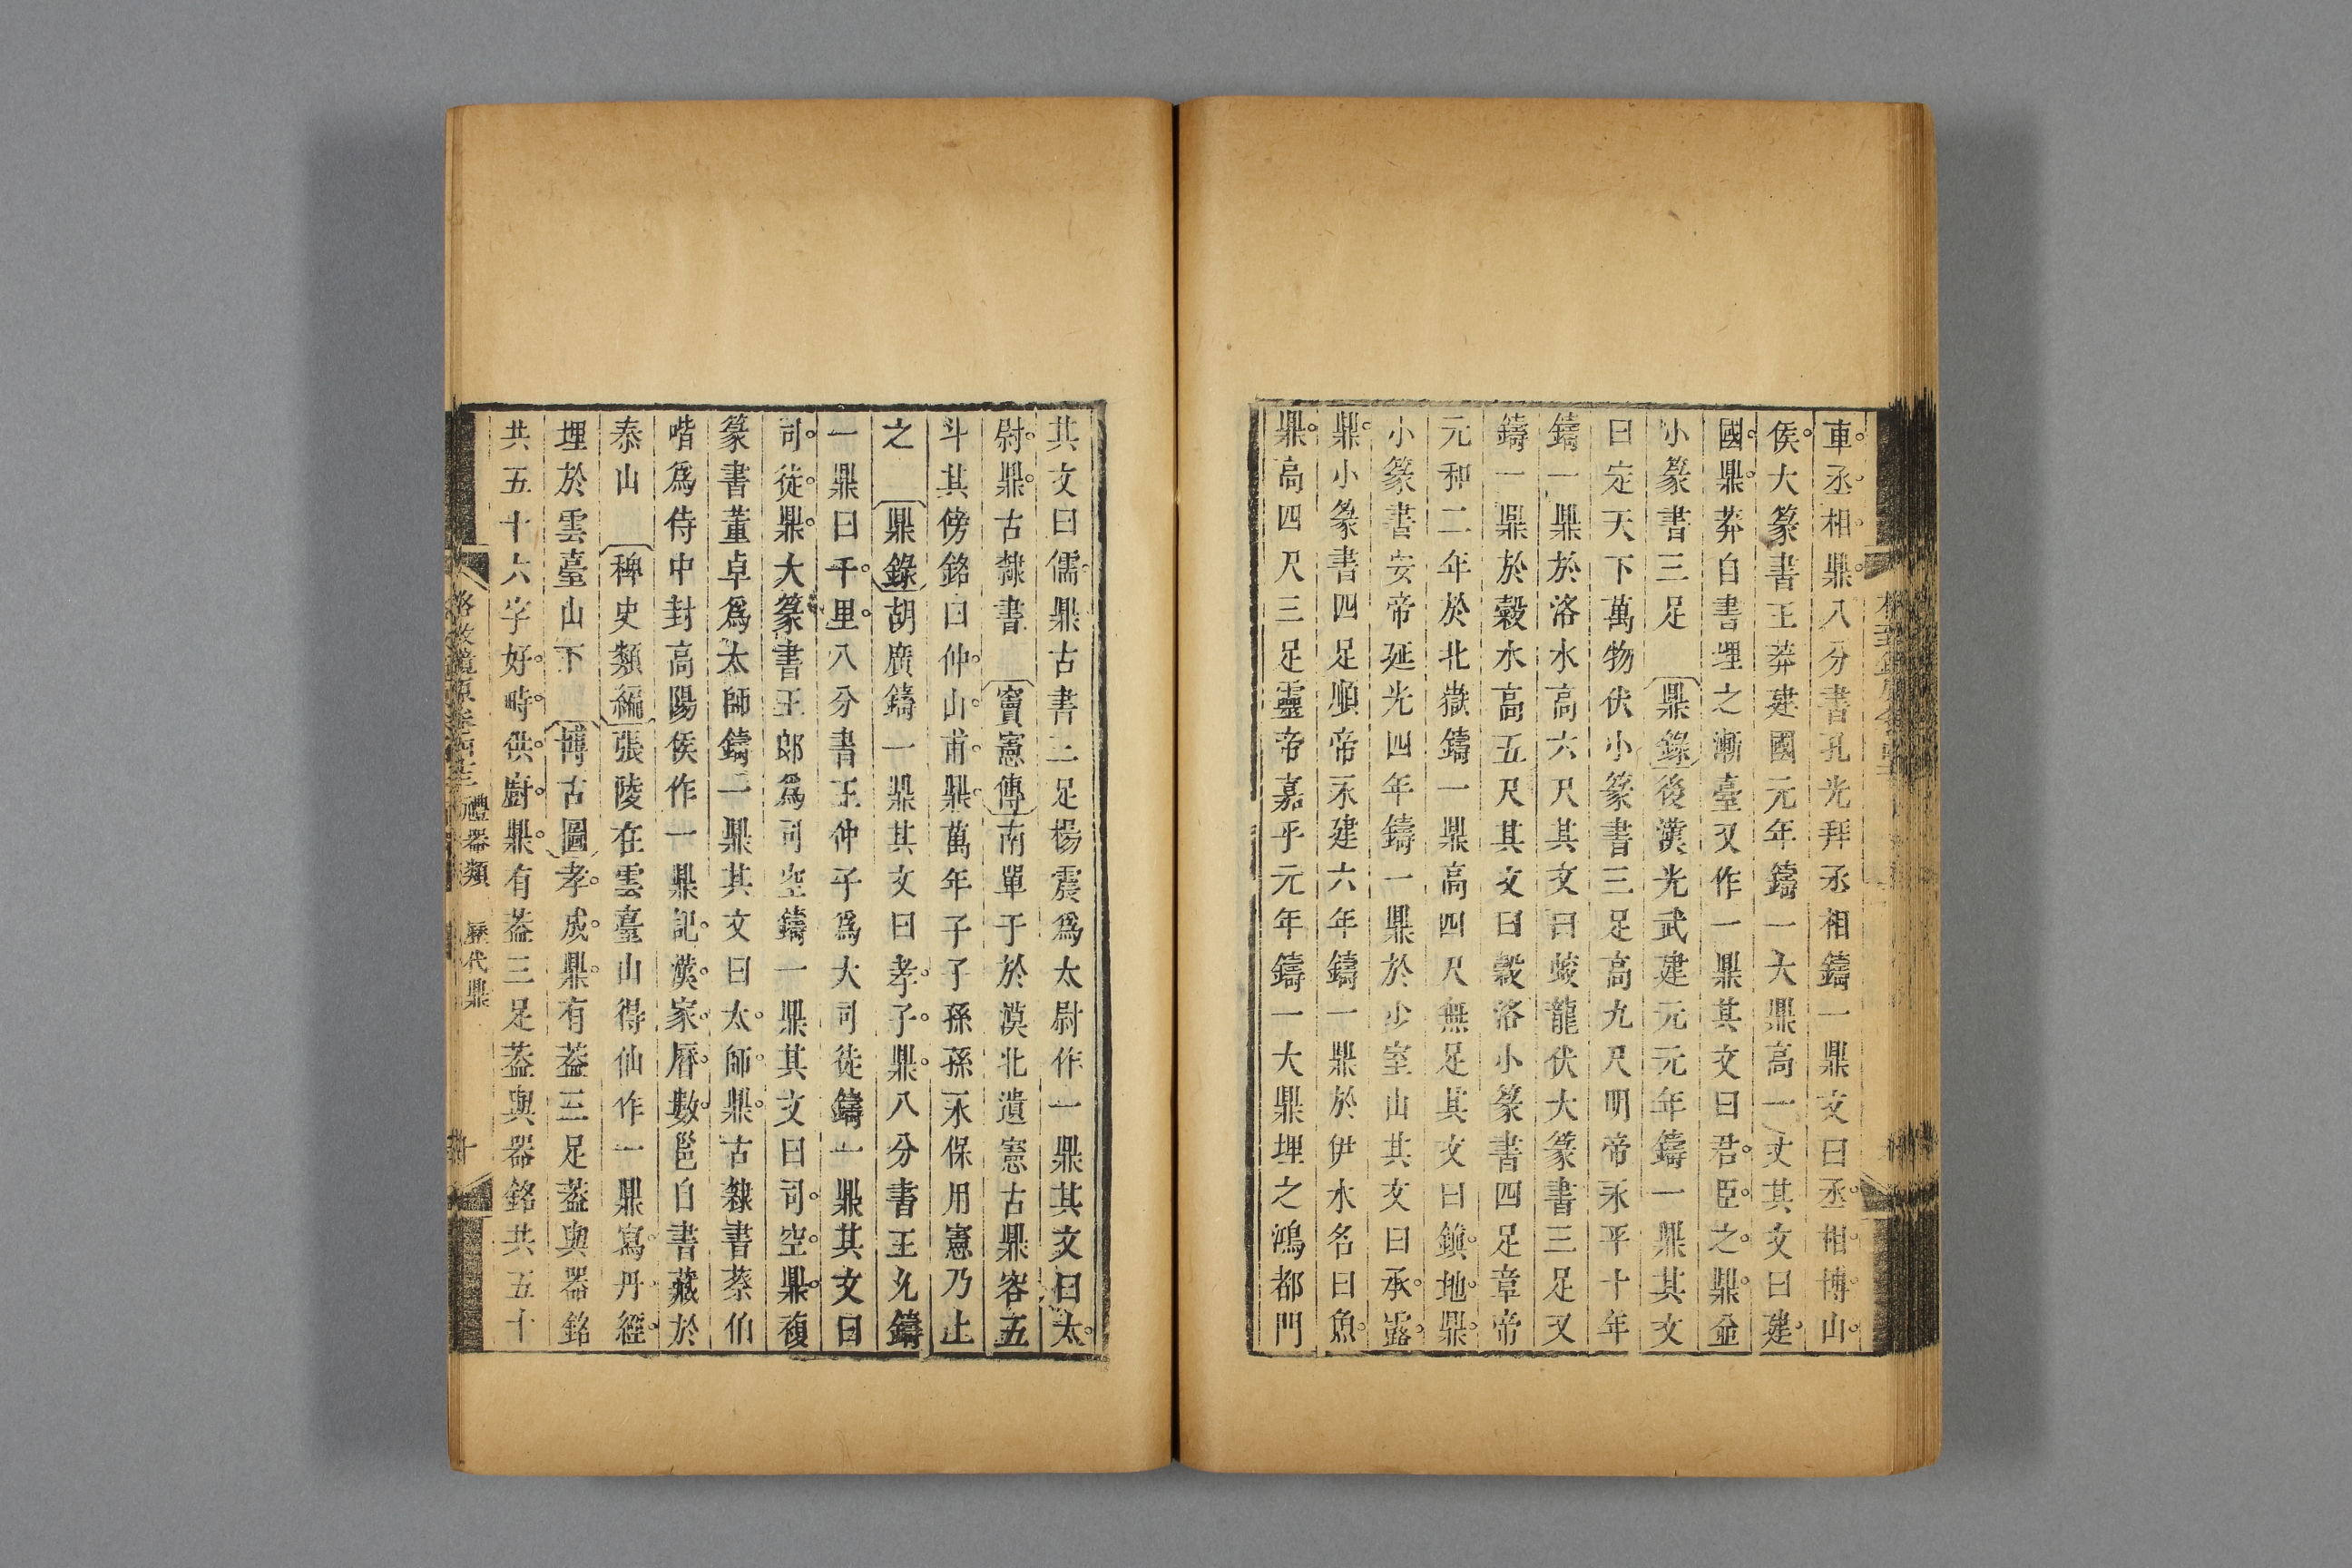 車丞相鼎八分書孔光拜丞相鑄一鼎文曰丞相博山
侯大篆書王莽建國元年鑄一大鼎高一丈其文曰建
國鼎莽自書埋之漸臺又作一鼎其文曰君臣之鼎並
小篆書三足 鼎錄後漢光武建元元年鑄一鼎其文
曰定天下萬物伏小篆書三足高九尺明帝永平十年
鑄一鼎於洛水高六尺其文曰蛟龍伏大篆書三足又
鑄一鼎於穀水高五尺其文曰穀洛小篆書四足章帝
元和二年於北嶽鑄一鼎高四尺無足其文曰鎮地鼎
小篆書安帝延光四年鑄一鼎於少室山其文曰承露
鼎小篆書四足順帝永建六年鑄一鼎於伊水名曰魚
鼎高四尺三足靈帝嘉平元年鑄一大鼎埋之鴻都門
其文曰儒鼎古書三足楊震為太尉作一鼎其文曰太
尉鼎古隸書 竇憲傳南單于於漠北遺憲古鼎容五
斗其傍銘曰仲山甫鼎萬年子子孫孫永保用憲乃上
之 鼎錄胡廣鑄一鼎其文曰孝子鼎八分書王允鑄
一鼎曰千里八分書王仲子爲大司徒鑄一鼎其文曰
司徒鼎大篆書王郎爲司空鑄一鼎其文曰司空鼎複
篆書董卓爲太師鑄二鼎其文曰太師鼎古隸書蔡伯
喈爲侍中封高陽侯作一鼎記漢家曆數邕自書藏於
泰山 稗史類編張陵在雲臺山得仙作一鼎寫丹經
埋於雲臺山下 博古圖孝成鼎有葢三足葢與器銘
共五十六字好畤供廚鼎有葢三足葢與器銘共五十
格致鏡原卷 禮器類 歷代鼎 十